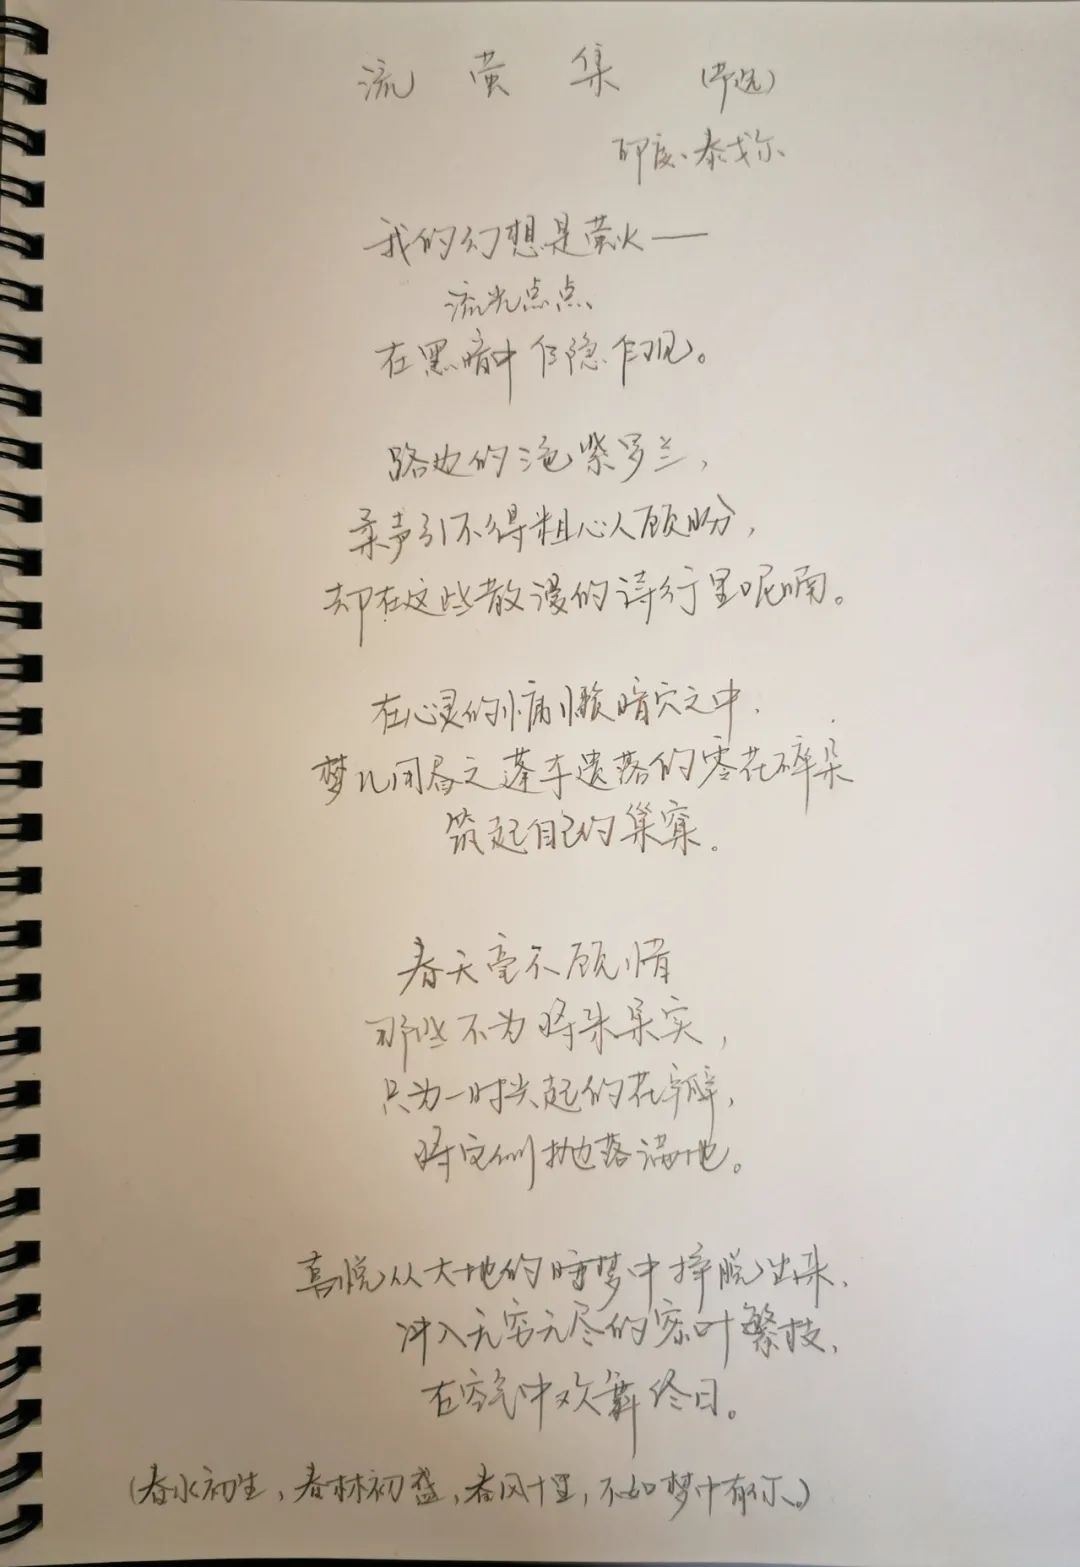 流萤集（节选）
印度、泰戈尔
我的幻想是萤火——
流光点点、
在黑暗中乍隐乍现。
路边的三色紫罗兰，
柔声引不得粗心人顾盼，
却在这些散漫的诗行里呢喃。
在心灵的慵懒暗穴之中，
梦儿用昼之蓬车遗落的零花碎朵
筑起自己的巢窠。
春天毫不顾惜
那些不为将来果实，
只为一时兴起的花瓣，
将它们抛落满地。
喜悦从大地的睡梦中挣脱出来，
冲入无穷无尽的密叶繁枝，
在空气中欢舞终日。
（春水初生，春林初盛，春风十里，不如梦中有你。）